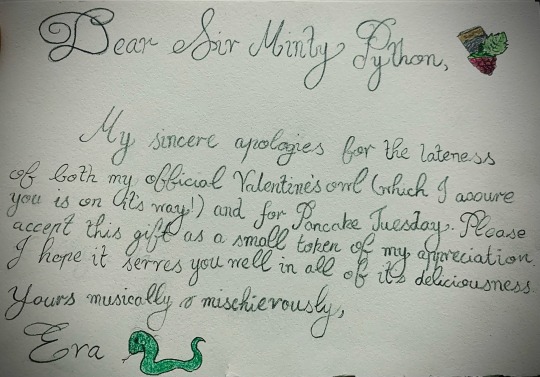 Dear Sir Minty Python,
My sincere apologies for the lateness
of both my official Valentine's owl (which I assure
you is on it's way!) and for Pancake Tuesday. Please
accept this gift as a small token of my appreciation.
I hope it serves you well in all of its deliciousness.
Yours musically & mischievously,
Eva